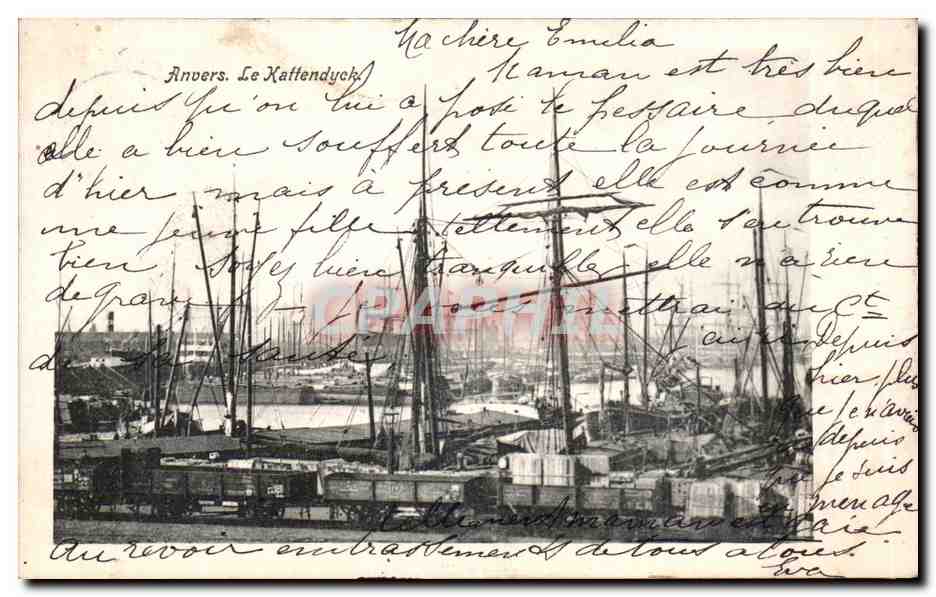 Anvers. Le Kattendyck.
Ma chère Emilia
Maman est très bien
depuis qu'on lui a posé le pessaire, duquel
elle a bien souffert toute la journée
d'hier mais à présent elle est comme
une jeune fille tellement elle s'en trouve
bien Soyez bien tranquille elle n'a rien
de grave et je vous mettrai au Ct
du Sa santé
CPAPHARTIK
Depuis
hier, plus
que j'en avais
depuis
que je suis
en ménage
maman est
Au revoir embrassements de tous a tous
Eva